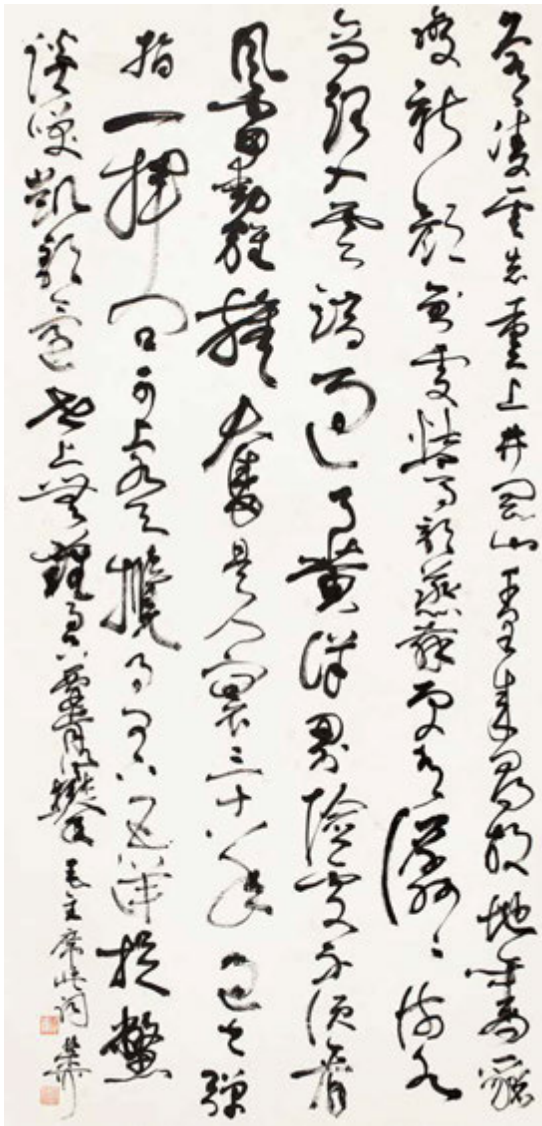 久有凌雲志重上井岡山千里来尋故地舊貌
變新顔到處鶯歌燕舞更有潺々流水
高路入雲端過了黄洋界險處不須看
風雷動旌旗奮是人寰三十八年過去彈
指一揮間可上九天攬月可下五洋捉鱉
談笑凱歌還世上無難事只要肯登攀 毛主席此詞